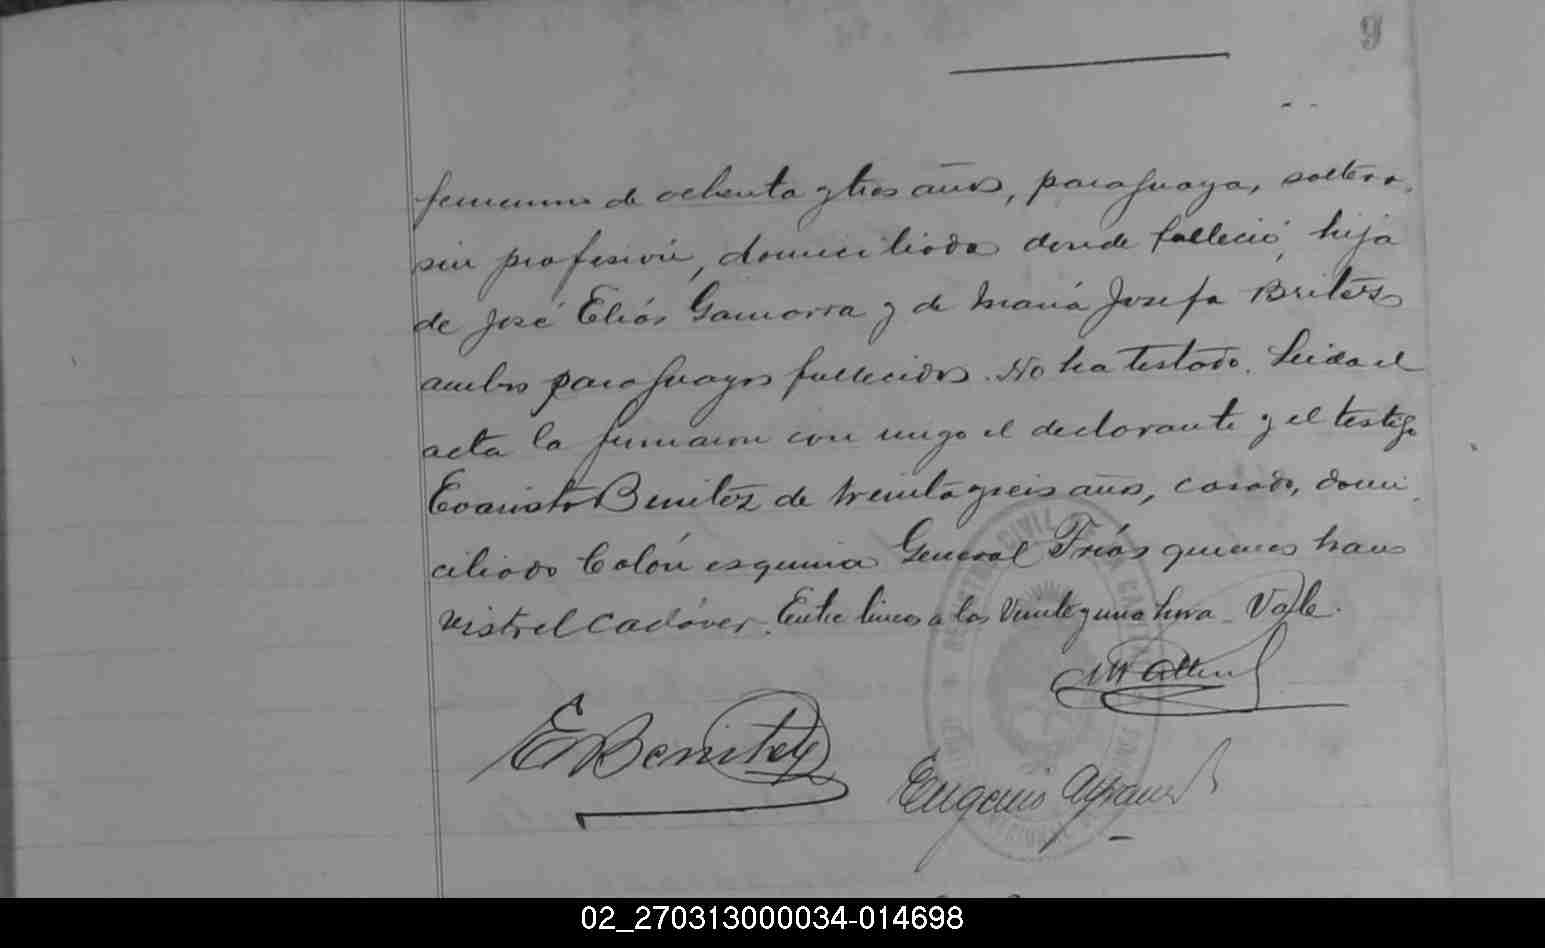 9
femenino de ochenta y tres años, paraguaya, soltera,
sin profesión, domiciliada donde falleció, hija
de José Elías Gamarra y de María Josefa Britez
ambos paraguayos fallecidos. No ha testado. Leida el
acta la firmaron con migo el declarante y el testigo
Evaristo Benitez de treinta y seis años, casado, domi
ciliado Colón esquina General Frías quienes han
visto el cadáver. Entre lineas a las veinte y una hora - Vale.
EBenitez
Eugenio
02_270313000034-014698